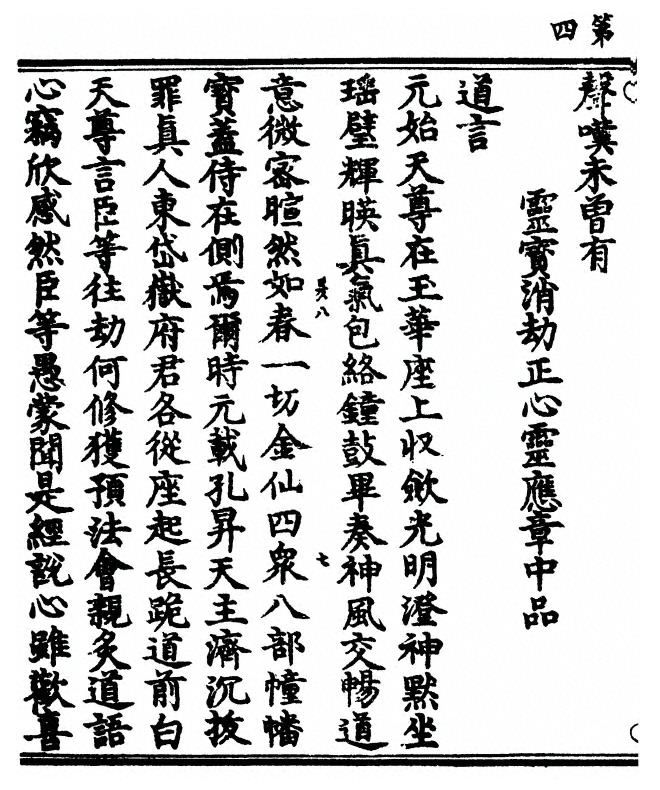 第四
聲嘆未曾有
靈寶消劫正心靈應章中品
道言
元始天尊在玉華座上收歛光明澄神黙坐
瑶璧輝暎真氣包絡鐘鼓畢奏神風交暢道
意微密暄然如春一切金仙四衆八部幢幡
寳蓋侍在側焉爾時元載孔昇天主濟沉拔
罪真人東岱嶽府君各從座起長跪道前白
天尊言臣等往劫何修獲預法會親炙道語
心竊欣感然臣等愚蒙聞是經說心雖歡喜
八
七